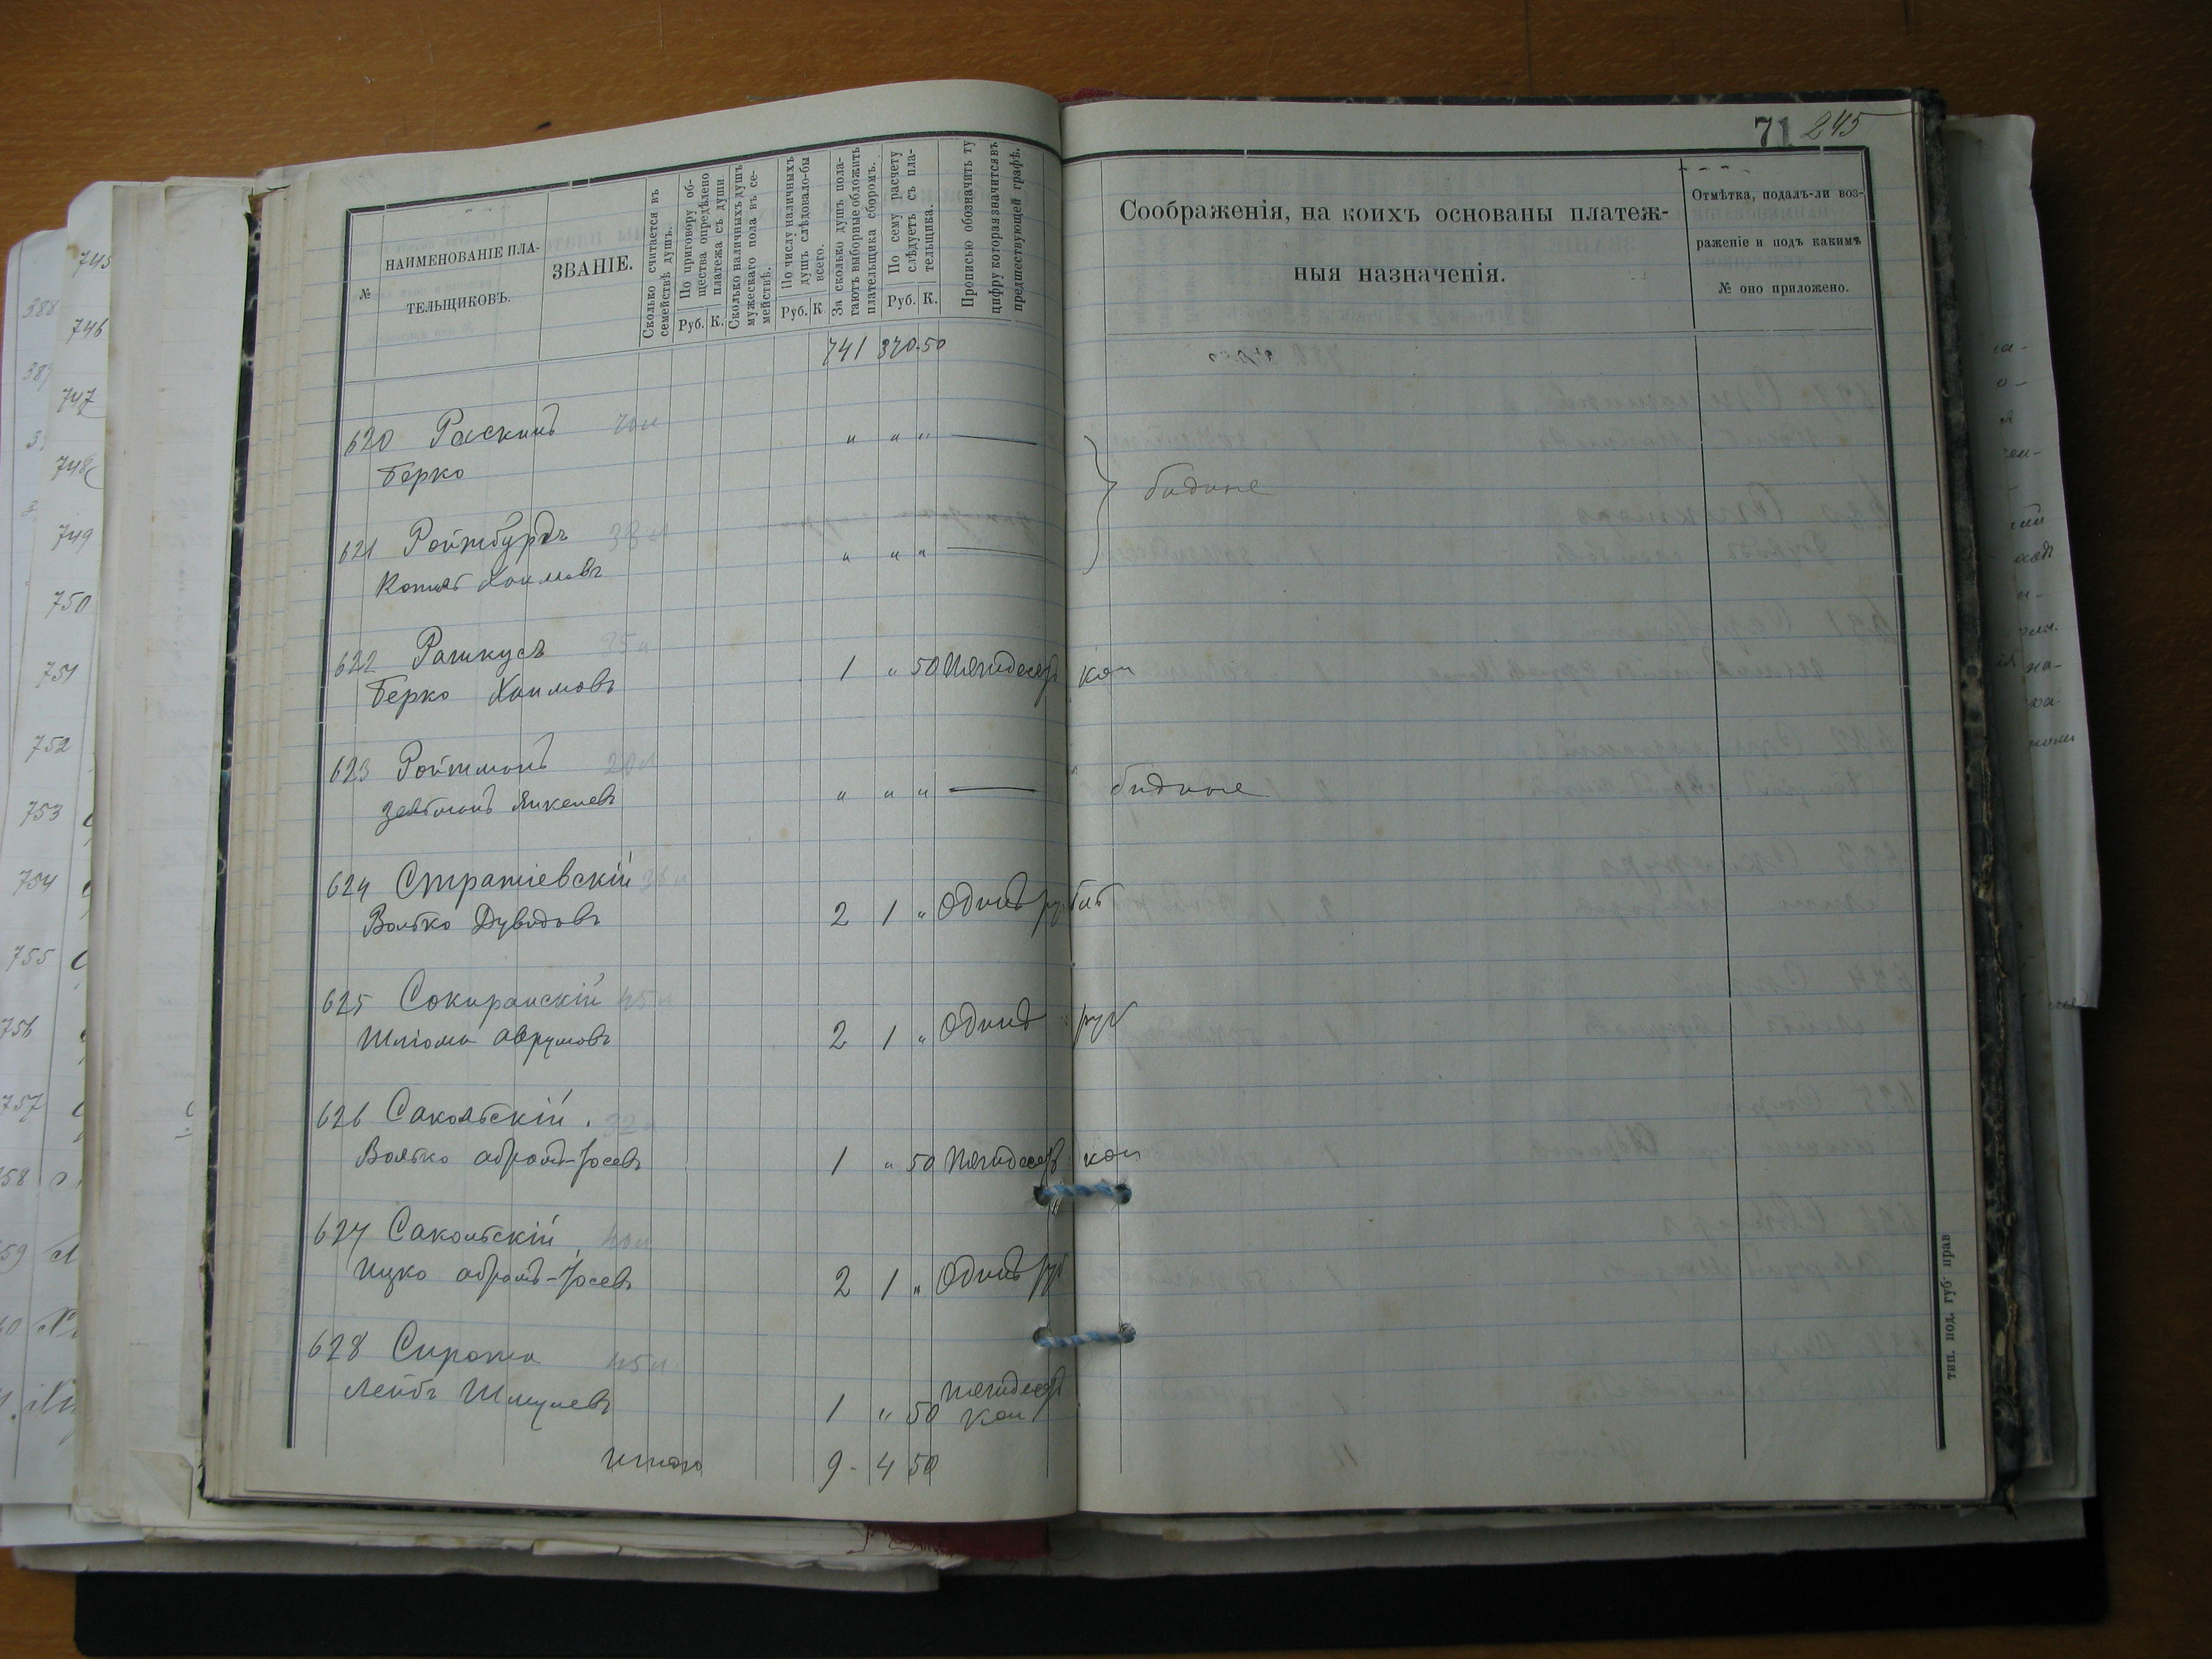 71 245
№
НАИМЕНОВАНІЕ ПЛА-
ТЕЛЬЩИКОВЪ.
ЗВАНІЕ.
Сколько считается въ
семействѣ душъ.
По приговору об-
щества опредѣлено
платежа съ души
Руб. К.
Сколько наличныхъ душъ
мужескаго пола въ се-
мействѣ.
По числу наличныхъ
душъ слѣдовало-бы
всего.
Руб. К.
За сколько душъ пола-
гаютъ выборные обложить
плательщика сборомъ.
По сему расчету
слѣдуетъ съ пла-
тельщика.
Руб. К.
Прописью обозначить ту
цифру которая значится въ
предшествующей графѣ.
Соображенія, на коихъ основаны платеж-
ныя назначенія.
Отмѣтка, подалъ-ли воз-
раженіе и подъ какимъ
№ оно приложено.
741 370 50
620 Раскинъ 70 л
Берко " " "
бидные
621 Ройтбурдъ 38 л
Копель Хаимовъ " " "
622 Раткусъ 35 л
Берко Хаимовъ 1 " 50 Пятдесят коп
623 Ройтманъ 20 л
Зельманъ Янкелев " " " бидные
624 Стратіевскій 36 л
Волько Дувидовъ 2 1 " Одинъ рубль
625 Сокиранскій 45 л
Шліома Аврумовъ 2 1 " Одинъ руб
626 Сакольскій 32 л
Волько Абрамъ-Іосевъ 1 " 50 Пятдесят коп
627 Сакольскій 40 л
Ицко Абрамъ-Іосев 2 1 " Одинъ руб
628 Сирота 45 л
Лейбъ Шмулевъ 1 " 50 пятдесят
коп
Итого 9 - 4 50
тип. под. губ. прав
745
746
747
748
749
750
751
752
753
754
755
756
757